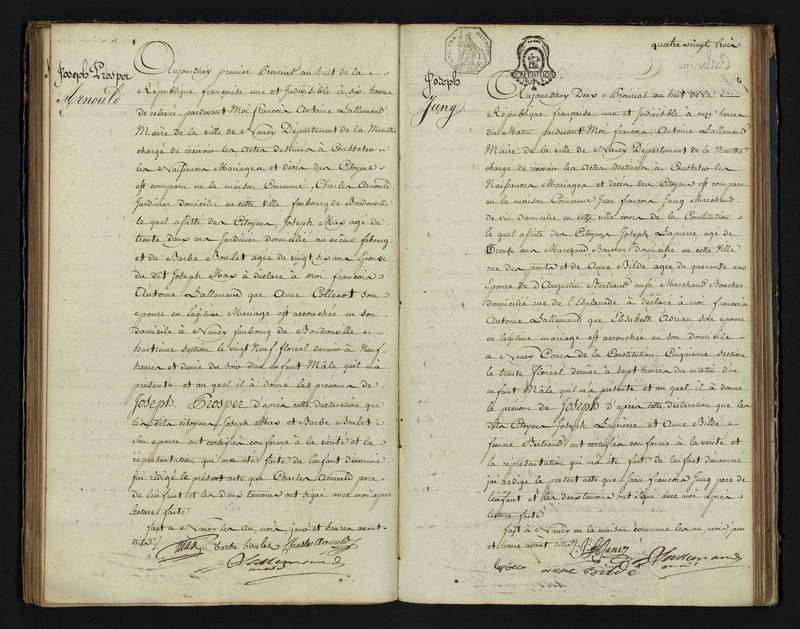 Joseph Prosper
Arnould
Aujourdhuy premier Prairial an huit de la
République française une et Indivisible à six heures
de relevée pardevant Moi françois Antoine Lallemand
Maire de la ville de Nancy Département de la Meurthe
chargé de recevoir les Actes destinés à Constater
les Naissances Mariages et décès des Citoyens
est comparu en la maison Commune, Charles Arnould
Jardinier domicilié en cette ville faubourg de Boudonville
le quel assisté des Citoyens, Joseph Max agé de
trente deux ans Jardinier domicilié au même fabourg
et de Barbe Boulet agée de vingt six ans Epouse
du dit Joseph Max à déclaré à moi françois
Antoine Lallemand que Anne Collenot son
epouse en légitime Mariage est accouchée en son
domicile à Nancy faubourg de Boudonville
huitieme section le vingt Neuf floréal dernier à Neuf
heures et demie du soir d'un enfant Mâle quil m'a
présenté et au quel il à donné les prenoms de
Joseph Prosper d'après cette déclaration que
les dits citoyens Joseph Max et Barbe Boulet
son epouse ont certifiés conforme à la vérité et la
réprésentation qui m'a étés faite de l'enfant dénommé
j'ai rédigé le présent acte que Charles Arnould pere
de l'enfant et les deux temoins ont signé avec moi apres
lecture faite
fait à Nancy les an, mois jour et heures avant
dits
Max barbe boulet Charles Arnould
Lallemand
quatre vingt trois
Joseph
Jung
Aujourdhuy Deux Prairial an huit de la
République française une et Indivisible à onze heures
du Matin pardevant Moi françois Antoine Lallemand
Maire de la ville de Nancy Département de la Meurthe
chargé de recevoir les Actes destinés à Constater les
Naissances Mariages et décès des Citoyens est comparu
en la maison Commune Jean françois Jung Marchand
de vin domicilié en cette ville cours de la Constitution
le quel assisté des Citoyens Joseph Lapierre agé de
Trente ans Marchand Boucher domicilié en cette Ville
rue des ponts et de Anne Bildé agée de quarante ans
Epouse de d'Augustin Bertrand aussi Marchand Boucher
domicilié rue de l'Esplanade à déclaré à moi françois
Antoine Lallemand que Elisabeth Adrian son epouse
en légitime mariage est accouchée en son domicile
à Nancy Cours de la Constitution Cinquieme section
le trente floréal dernier à sept heures du matin d'un
enfant Mâle quil m'a présenté et au quel il à donné
le prenom de Joseph d'après cette déclaration que les
dits Citoyens Joseph Lapierre et Anne Bildé
femme Bertrand ont certifiés conforme à la vérité et
la représentation qui m'a été faite de l'enfant dénommé
j'ai rédigé le présent acte que Jean françois Jung pere de
l'enfant et les deux temoins ont signé avec moi après
lecture faite
fait à Nancy en la maison commune les an, mois, jour
et heure avant dits
anne Bildé Lallemand